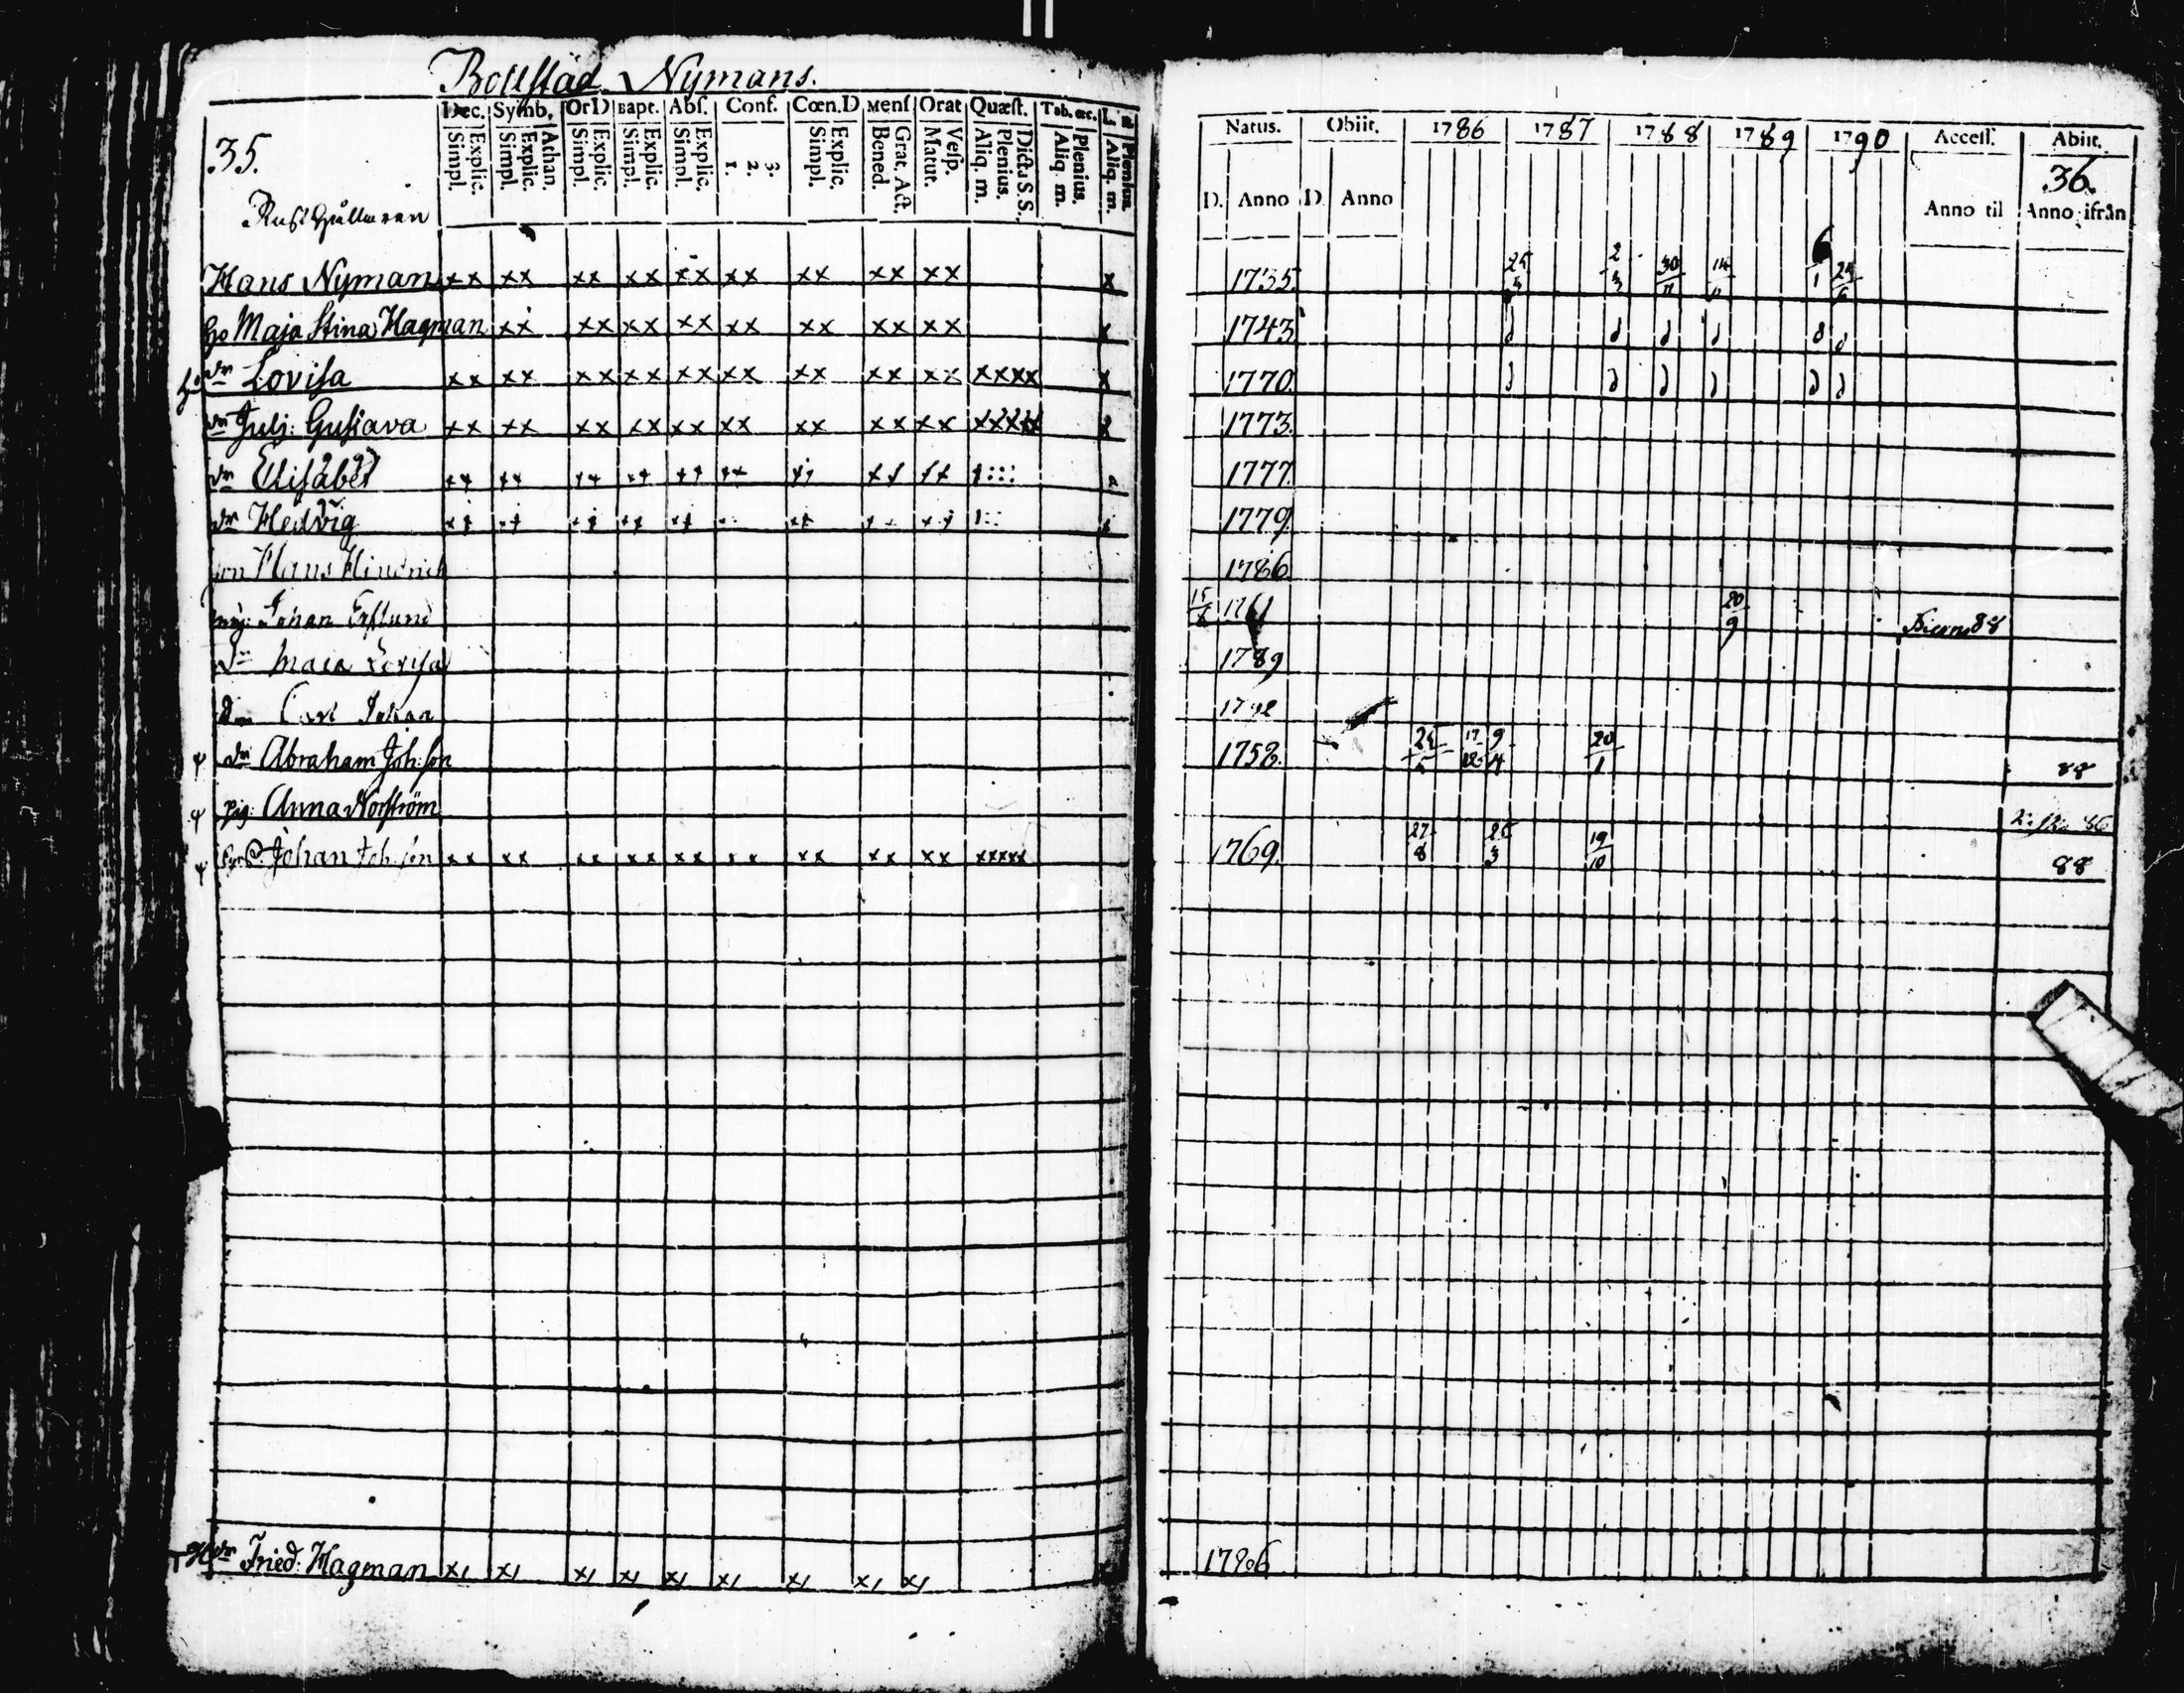 Bollstäd Nymans.
35.
Dec. Symb. Or D Bapt. Abſ. Conf. Cœn. D Menſ Orat Quæſt. Tab. œc. L.
Explic. Simpl. Athan. Explic. Simpl. Explic. Simpl. Explic. Simpl. Explic. Simpl. 3. 2. 1. Explic. Simpl. Grat. Act. Bened. Veſp. Matut. Dicta S. S. Plenius. Aliq. m. Plenius. Aliq. m. Plenius Aliq. m.
Natus. Obiit. 1786 1787 1788 1789 1790 Acceſſ. Abiit.
36.
D. Anno D. Anno Anno til Anno ifrån
Rusthållaren
Hans Nyman xx xx xx xx xx xx xx xx xx x 1735. 25/3 2/3 30/11 14/11 6/1 24/6
Maja Stina Hagman xx xx xx xx xx xx xx xx x 1743
dr Loviſa xx xx xx xx xx xx xx xx xx xxxx x 1770.
dr Julj: Guſtava xx xx xx xx xx xx xx xx xx xxxxx x 1773.
dr Eliſabet 1777.
dr Hedvig 1779.
son Hans Hindrich 1786
Johan 15 1761 20/9 88
Maia Loviſa 1789
Carl Johan 1792
dr Abraham Joh:ſon 1758. 24/5 17/12 9/4 20/1 88
pig: Anna Norſtröm 86
Johan Joh:ſon xx xx xx xx xx xx xx xx xx xxxxx 1769. 27/8 25/3 19/10 88
Fried: Hagman 1786